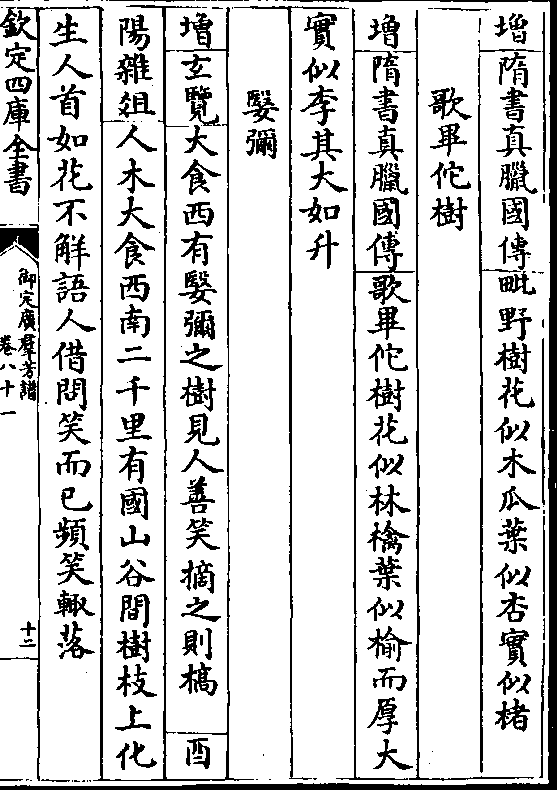 增隋書真臘國傳毗野樹花似木瓜葉似杏實似楮
歌畢佗樹
增隋書真臘國傳歌畢佗樹花似林檎葉似榆而厚大
實似李其大如升
娑彌
增玄覽大食西有娑彌之樹見人善笑摘之則槁 酉
陽雜俎人木大食西南二千里有國山谷間樹枝上化
生人首如花不解語人借問笑而已頻笑輙落
欽定四庫全書
御定廣羣芳譜
卷八十一
十二